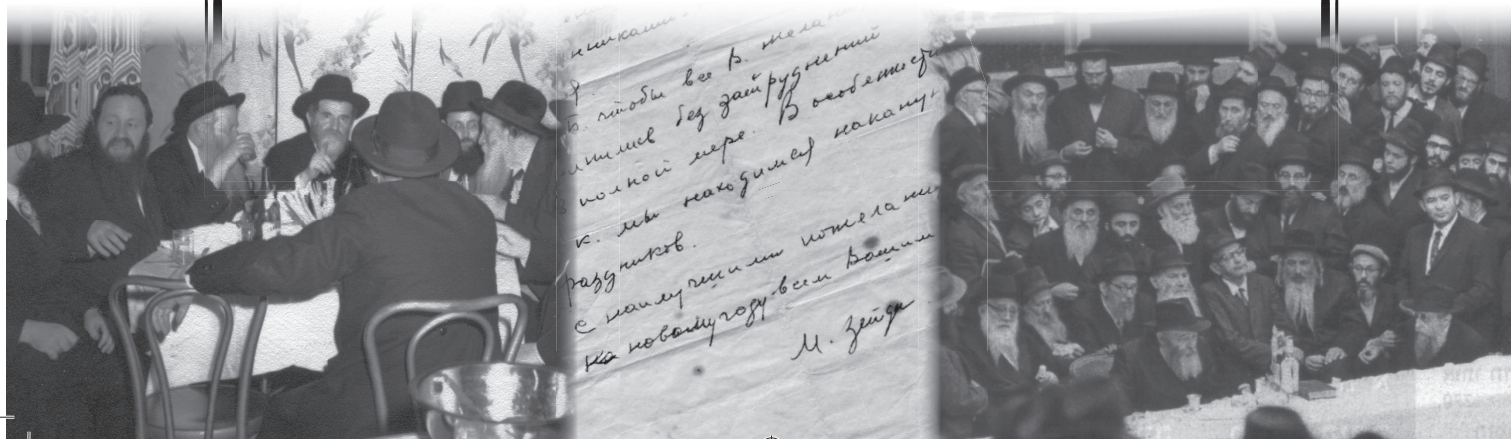 нниками.
Б. чтобы все В. желани
лнились без затруднений
в полной мере. В особенности
к. мы находимся накану
раздников.
С наилучшими пожелани
на новому году всем Вашим
М. Зейде